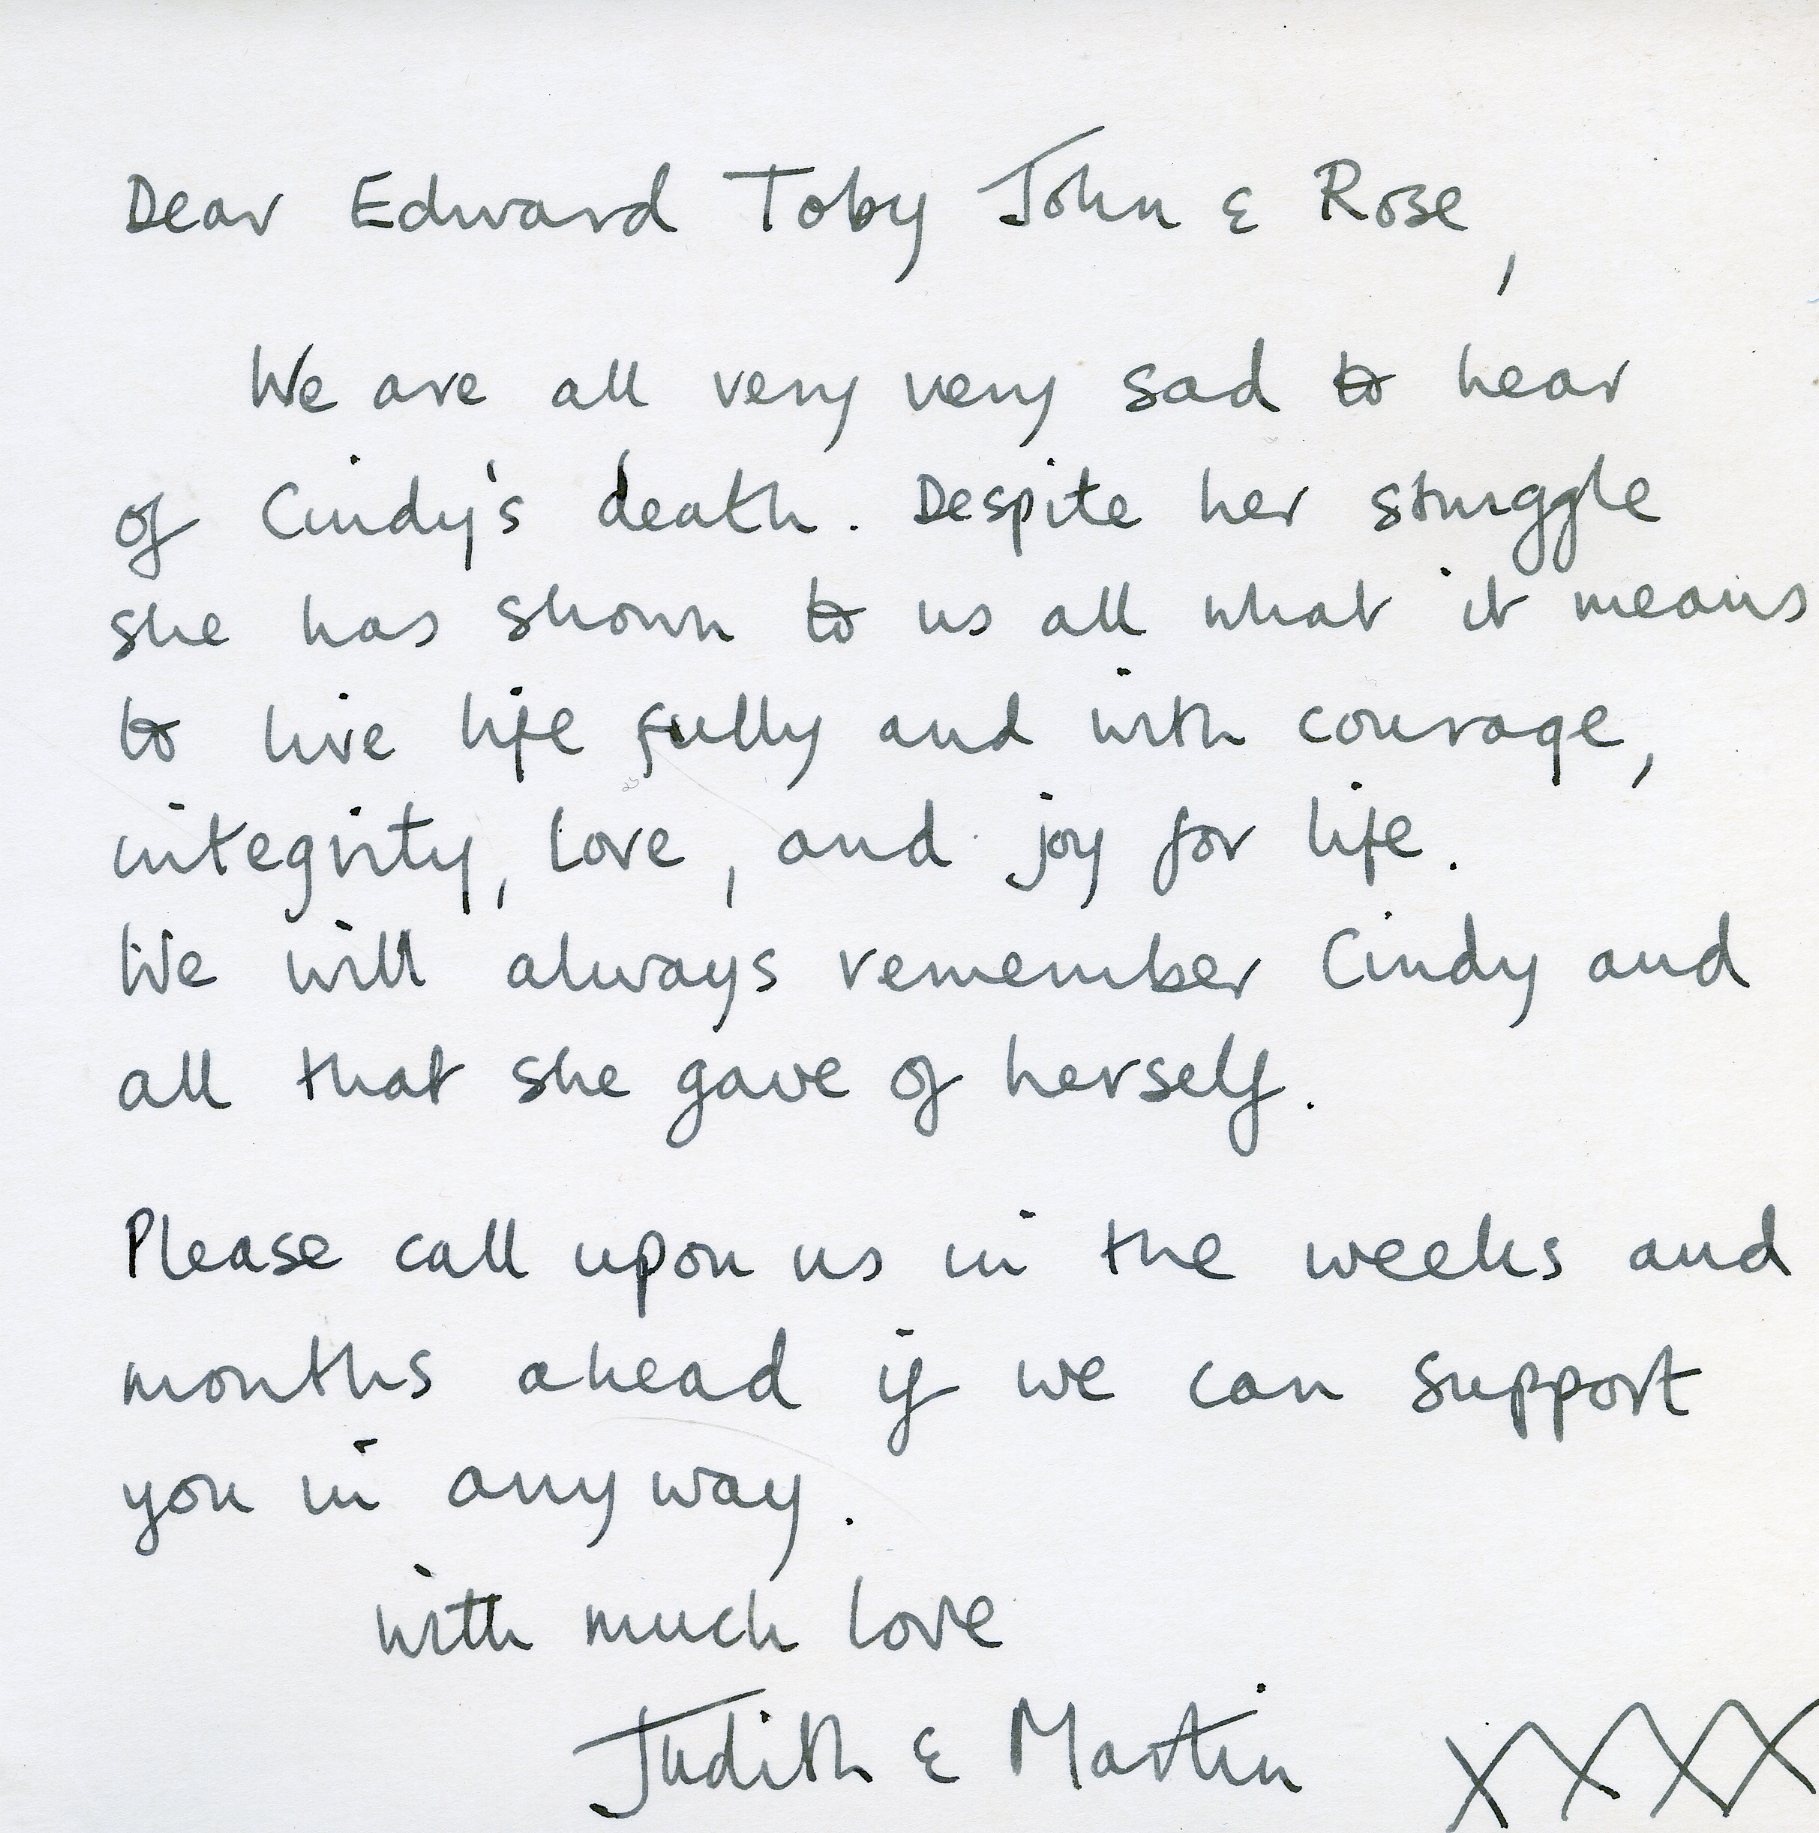 Dear Edward Toby John & Rose,
We are all very very sad to hear
of Cindy's death. Despite her struggle
she has shown to us all what it means
to live life fully and with courage,
integrity, love, and joy for life.
We will always remember Cindy and
all that she gave of herself.
Please call upon us in the weeks and
months ahead if we can support
you in any way.
with much love
Judith & Martin XXXX